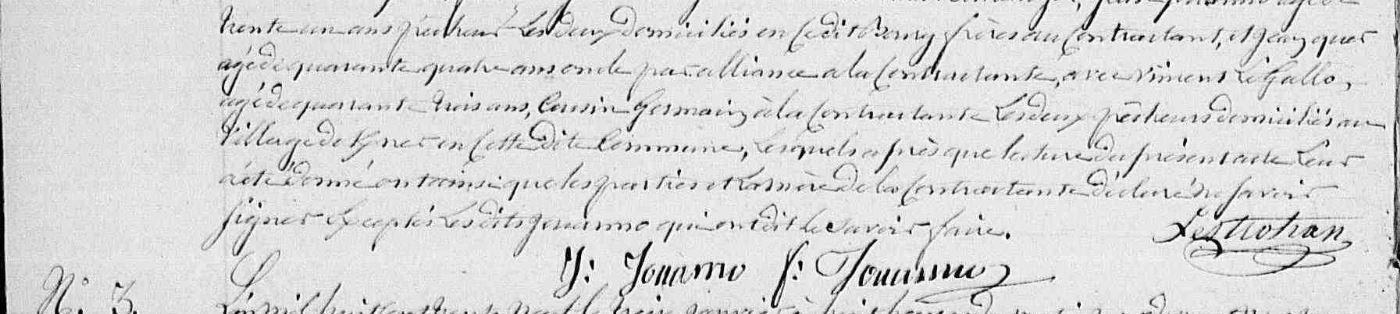 trente un ans pêcheur Les deux domiciliés en Cedit Bourg frères au Contractant, et Jean quer
agé de quarante quatre ans oncle par alliance a la Contractante, avec Vincent Le Gallo,
agé de quarante trois ans, Cousin Germain à la Contractante Les deux pêcheurs domiciliés au
village de en Cette dite Commune, Lesquels après que lecture du présent acte Leur
a été donné ont ainsi que les parties et la mère de la Contractante déclaré ne savoir
signer exceptés Les dits Jouanno qui ont dit le savoir faire.
Lestrohan
J: Jouanno f: Jouanno
N°. 3. L'an mil huit cent trente neuf le trois janvier à huit heures du